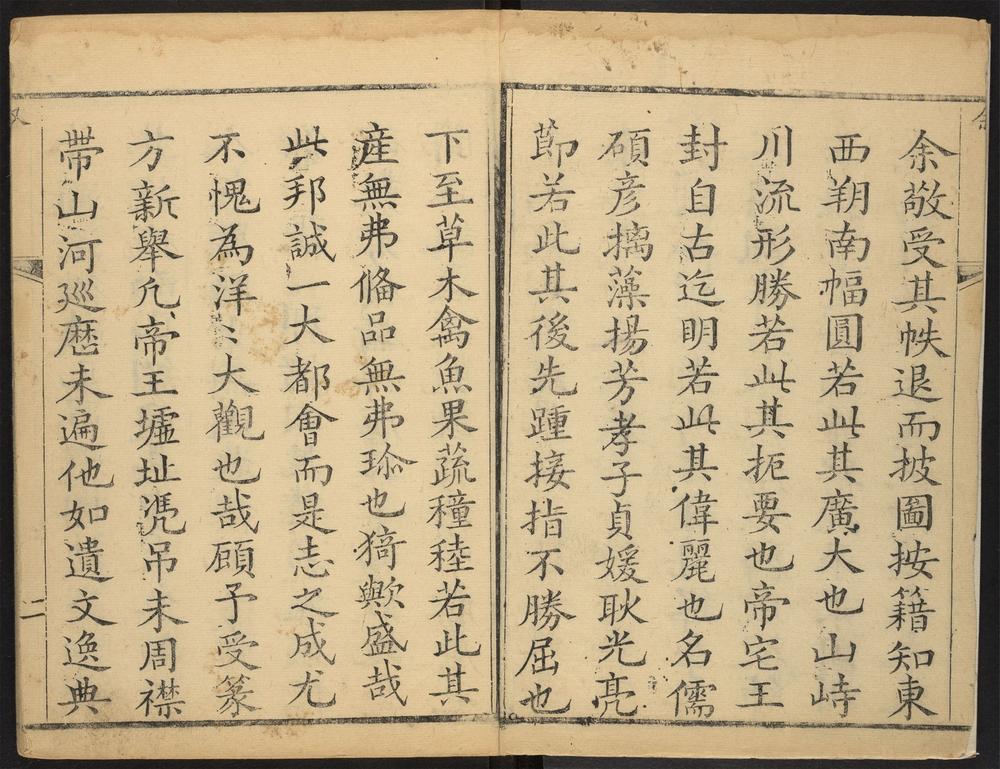 余敬受其帙退而披圖按籍知東
西朔南幅圓若此其廣大也山峙
川流形勝若此其扼要也帝宅王
封自古迄明若此其偉麗也名儒
碩彦摛藻揚芳孝子貞媛耿光亮
節若此其後先踵接指不勝屈也
下至草木禽魚果蔬穜稑若此其
産無弗俻品無弗珎也猗歟盛哉
此邦誠一大都會而是志之成尤
不愧為洋〻大觀也哉顧予受篆
方新舉凢帝王墟址凴吊未周襟
帶山河廵歴未遍他如遺文逸典
二